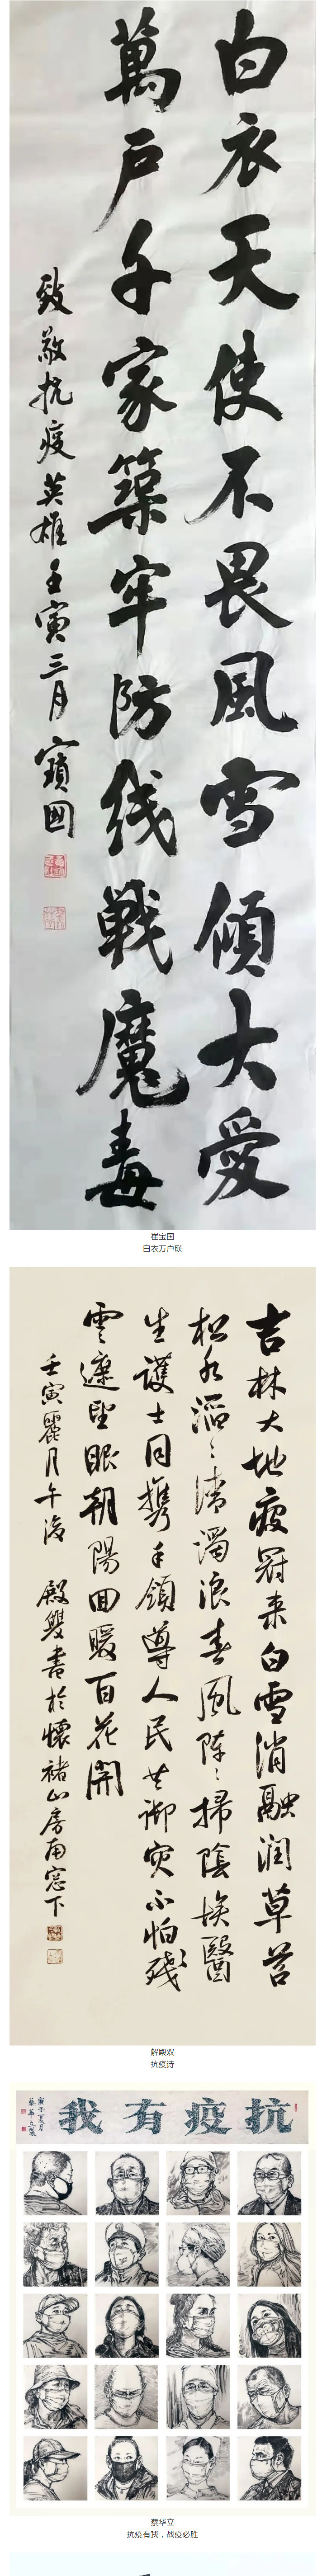 白衣天使不畏風雪傾大愛
萬戶千家築牢防线戰魔毒
致敬抗疫英雄壬寅三月寶國
崔宝国
白衣万户联
吉林大地疫冠来白雪消融润草苔
松水滔〻清濁浪春風陣〻掃陰埃醫
生護士同携手領尊人民共御灾不怕殘
雲遮望眼朝陽回暖百花開
壬寅麗月午後 殿雙書於懷褚山房南窓下
解殿双
抗疫诗
抗疫有我
庚子夏月
蔡华立
抗疫有我，战疫必胜